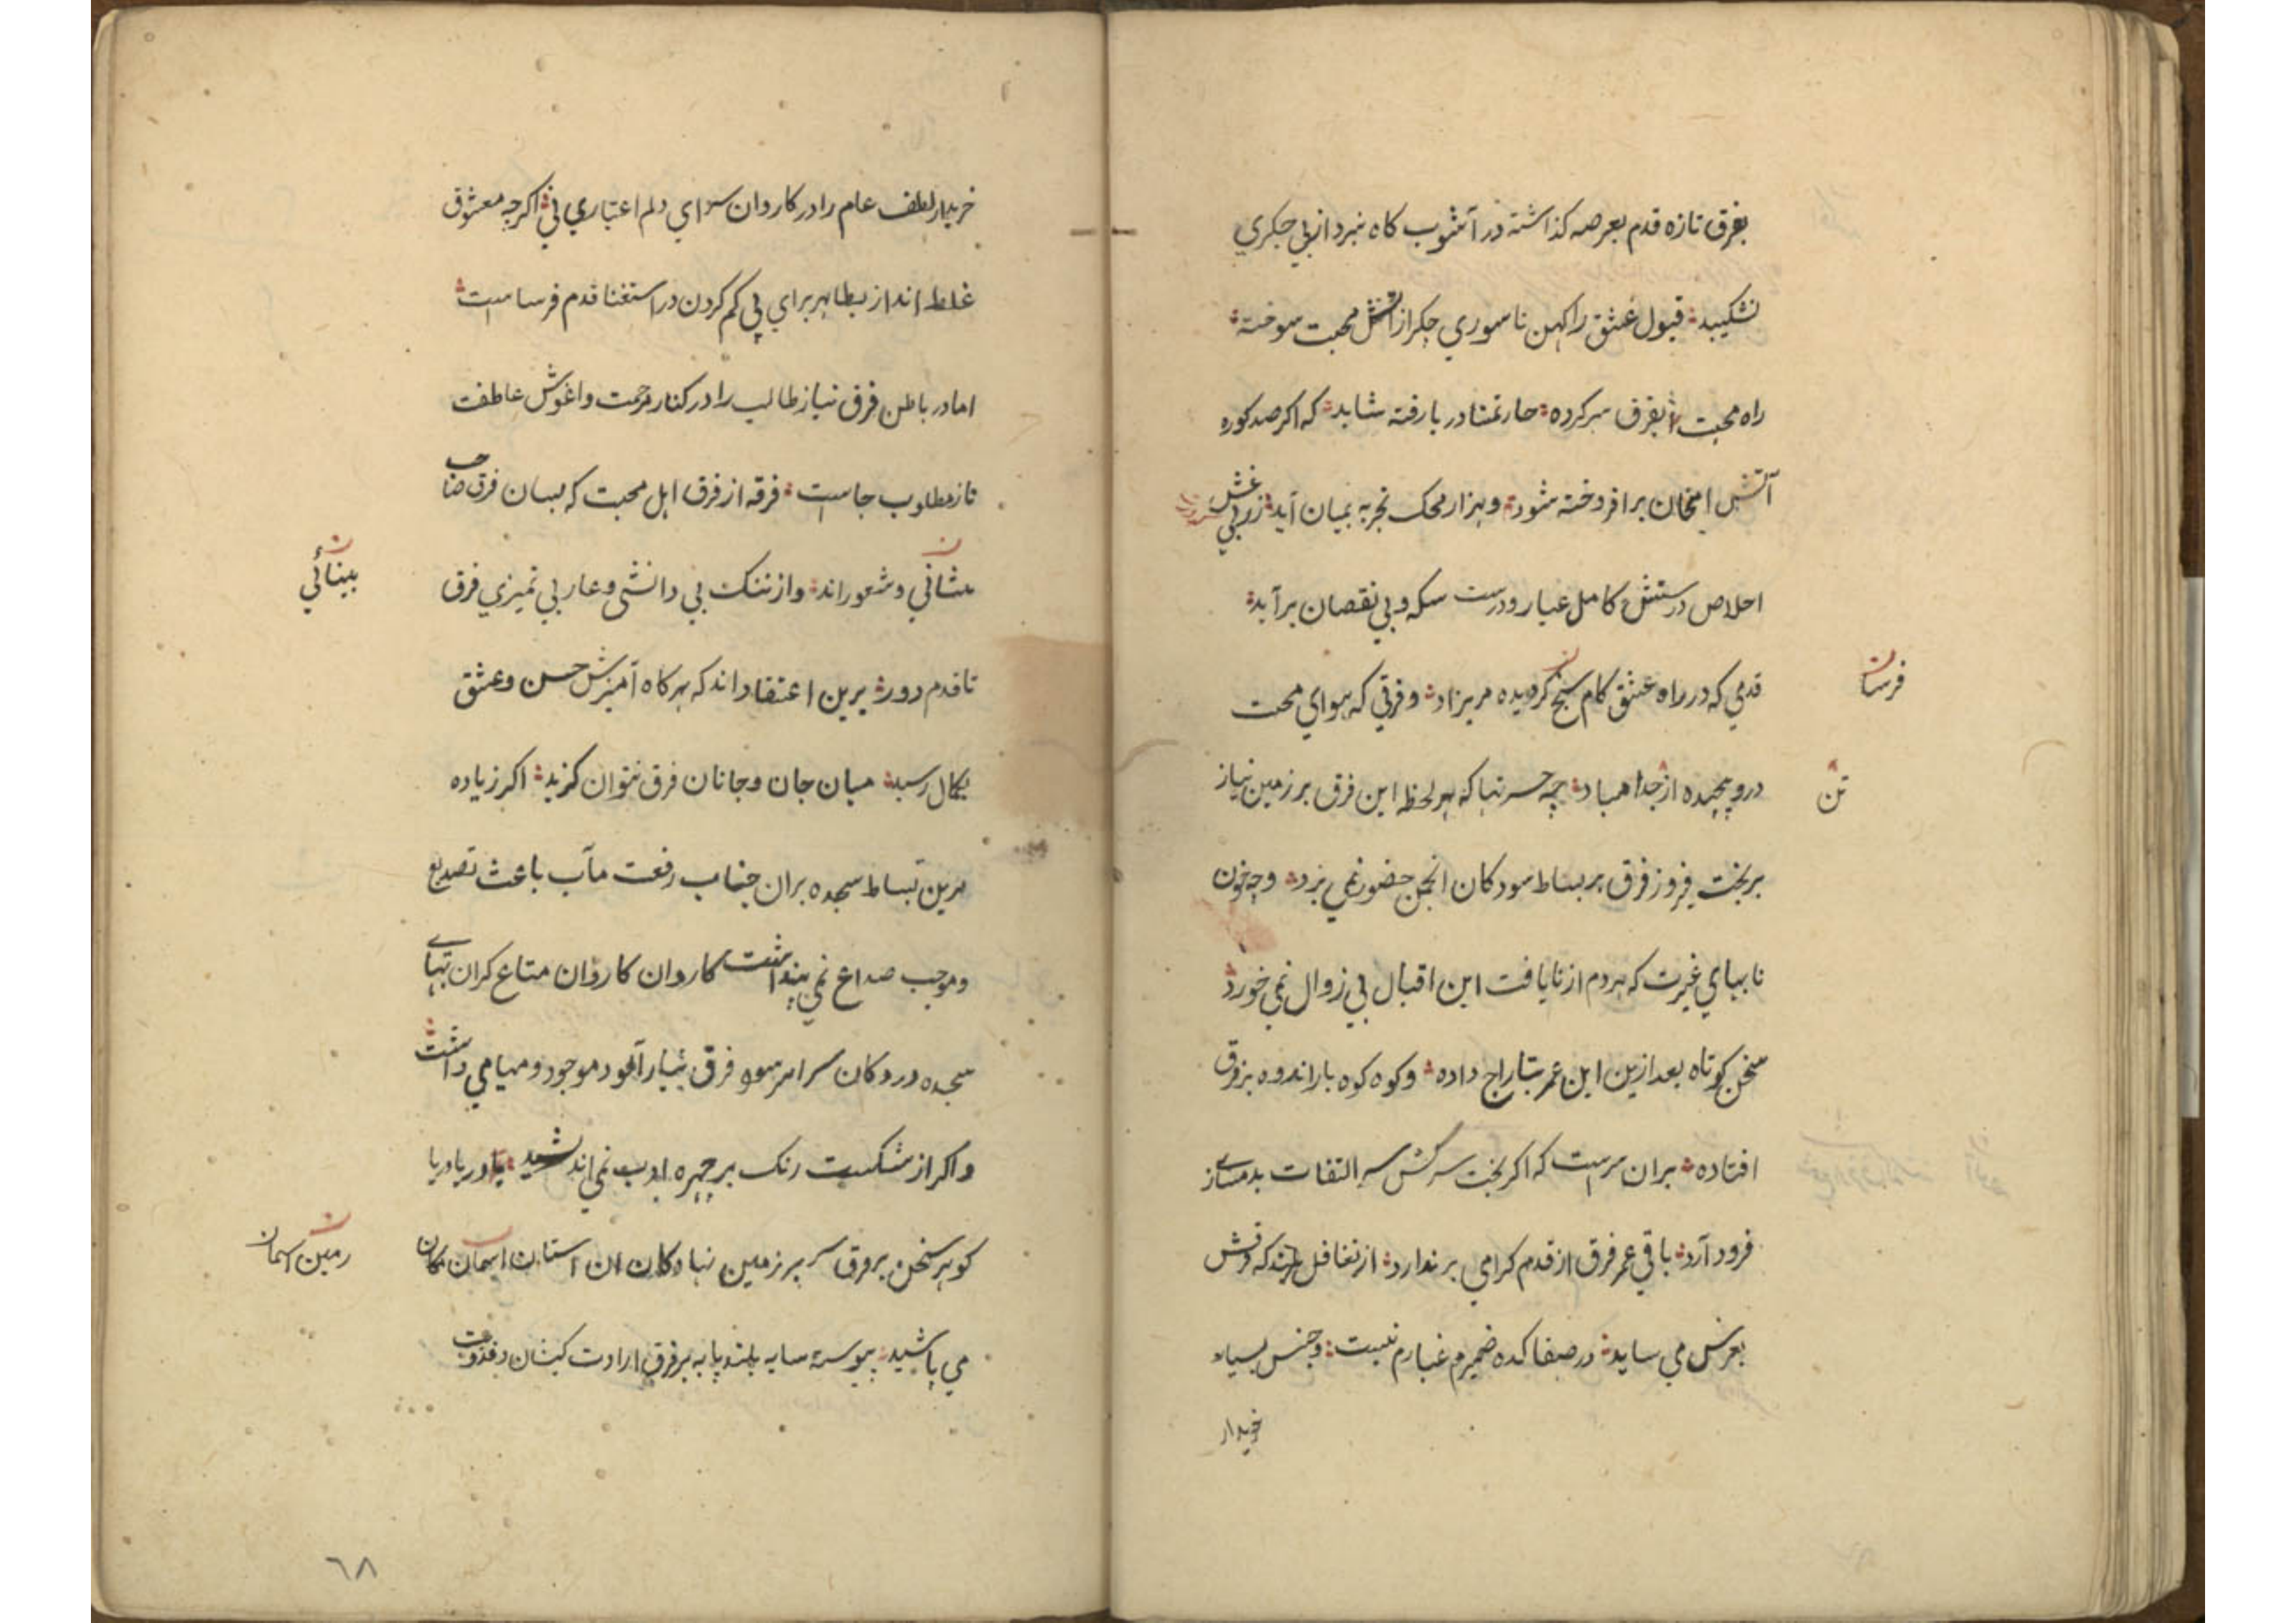 بفرق تازه قدم بعرصه كذاشته در آشوب كاه نبرد از بي جكري
نشكيبد قبول عشق را كهن ناسوري جكر از آتش محبت سوخته
راه محبت را بفرق سر كرده خار تمنا در پا رفته شايد كه اكر صد كوره
آتش امتحان برافروخته شود و هزار محك تجربه بميان آيد زر بي غش
اخلاص درستش كامل عيار و درست سكه و بي نقصان برآيد
قدمي كه در راه عشق كام سنج كرديده مريزاد و فرقي كه هواي محبت
فرسا
درو پيچيده از جدا مباد چه حسرتها كه هر لحظه اين فرق بر زمين نياز
تن
بر بخت فيروز فرق بر بساط سودكان انجمن حضور نمي برد و چه خون
نابهاي غيرت كه هر دم از نايافت اين اقبال بي زوال نمي خورد
سخن كوتاه بعد ازين اين عمر بتاراج داده و كوه كوه بار اندوه بر فرق
افتاده بران سرست كه اكر بخت سركش سر التفات بدمسازي
فرود آرد باقي عمر فرق از قدم كرامي برندارد از تغافل هرچند كه فرقش
بعرش مي سايد در صفاكده ضميرم غبارم نيست و جنس بسيار
خريدار
خريدار لطف عام را در كاروان سراي دلم اعتباري ني اكرچه معشوق
غلط انداز بظاهر براي پي كم كردن در استغنا قدم فرساست
اما در باطن فرق نياز طالب را در كنار مرحمت و اغوش عاطفت
ناز مطلوب جاست فرقه از فرق اهل محبت كه بسان فرق صاحب
شاني و شعوراند و از ننك بي دانشي و عار بي تميزي فرق
بينائي
تا قدم دور برين اعتقاداند كه هركاه آميزش حسن و عشق
بكمال رسيد ميان جان و جانان فرق نتوان كزيد اكر زياده
برين بساط سجده بران جناب رفعت مآب باعث تصديع
و موجب صداع نمي پنداشت كاروان كاروان متاع كران بهاي
سجده در دكان سراسر سود فرق غبار آلود موجود و مهيا مي داشت
و اكر از شكست رنك بر چهره ادب نمي انديشيد دريا دريا
كوهر سخن بر فرق سر بر زمين نهادكان ان استان اسمان مكان
زمين اسمان
مي پاشيد پيوسته سايه بلند پايه بر فرق ارادت كيشان و فدويت
٦٨